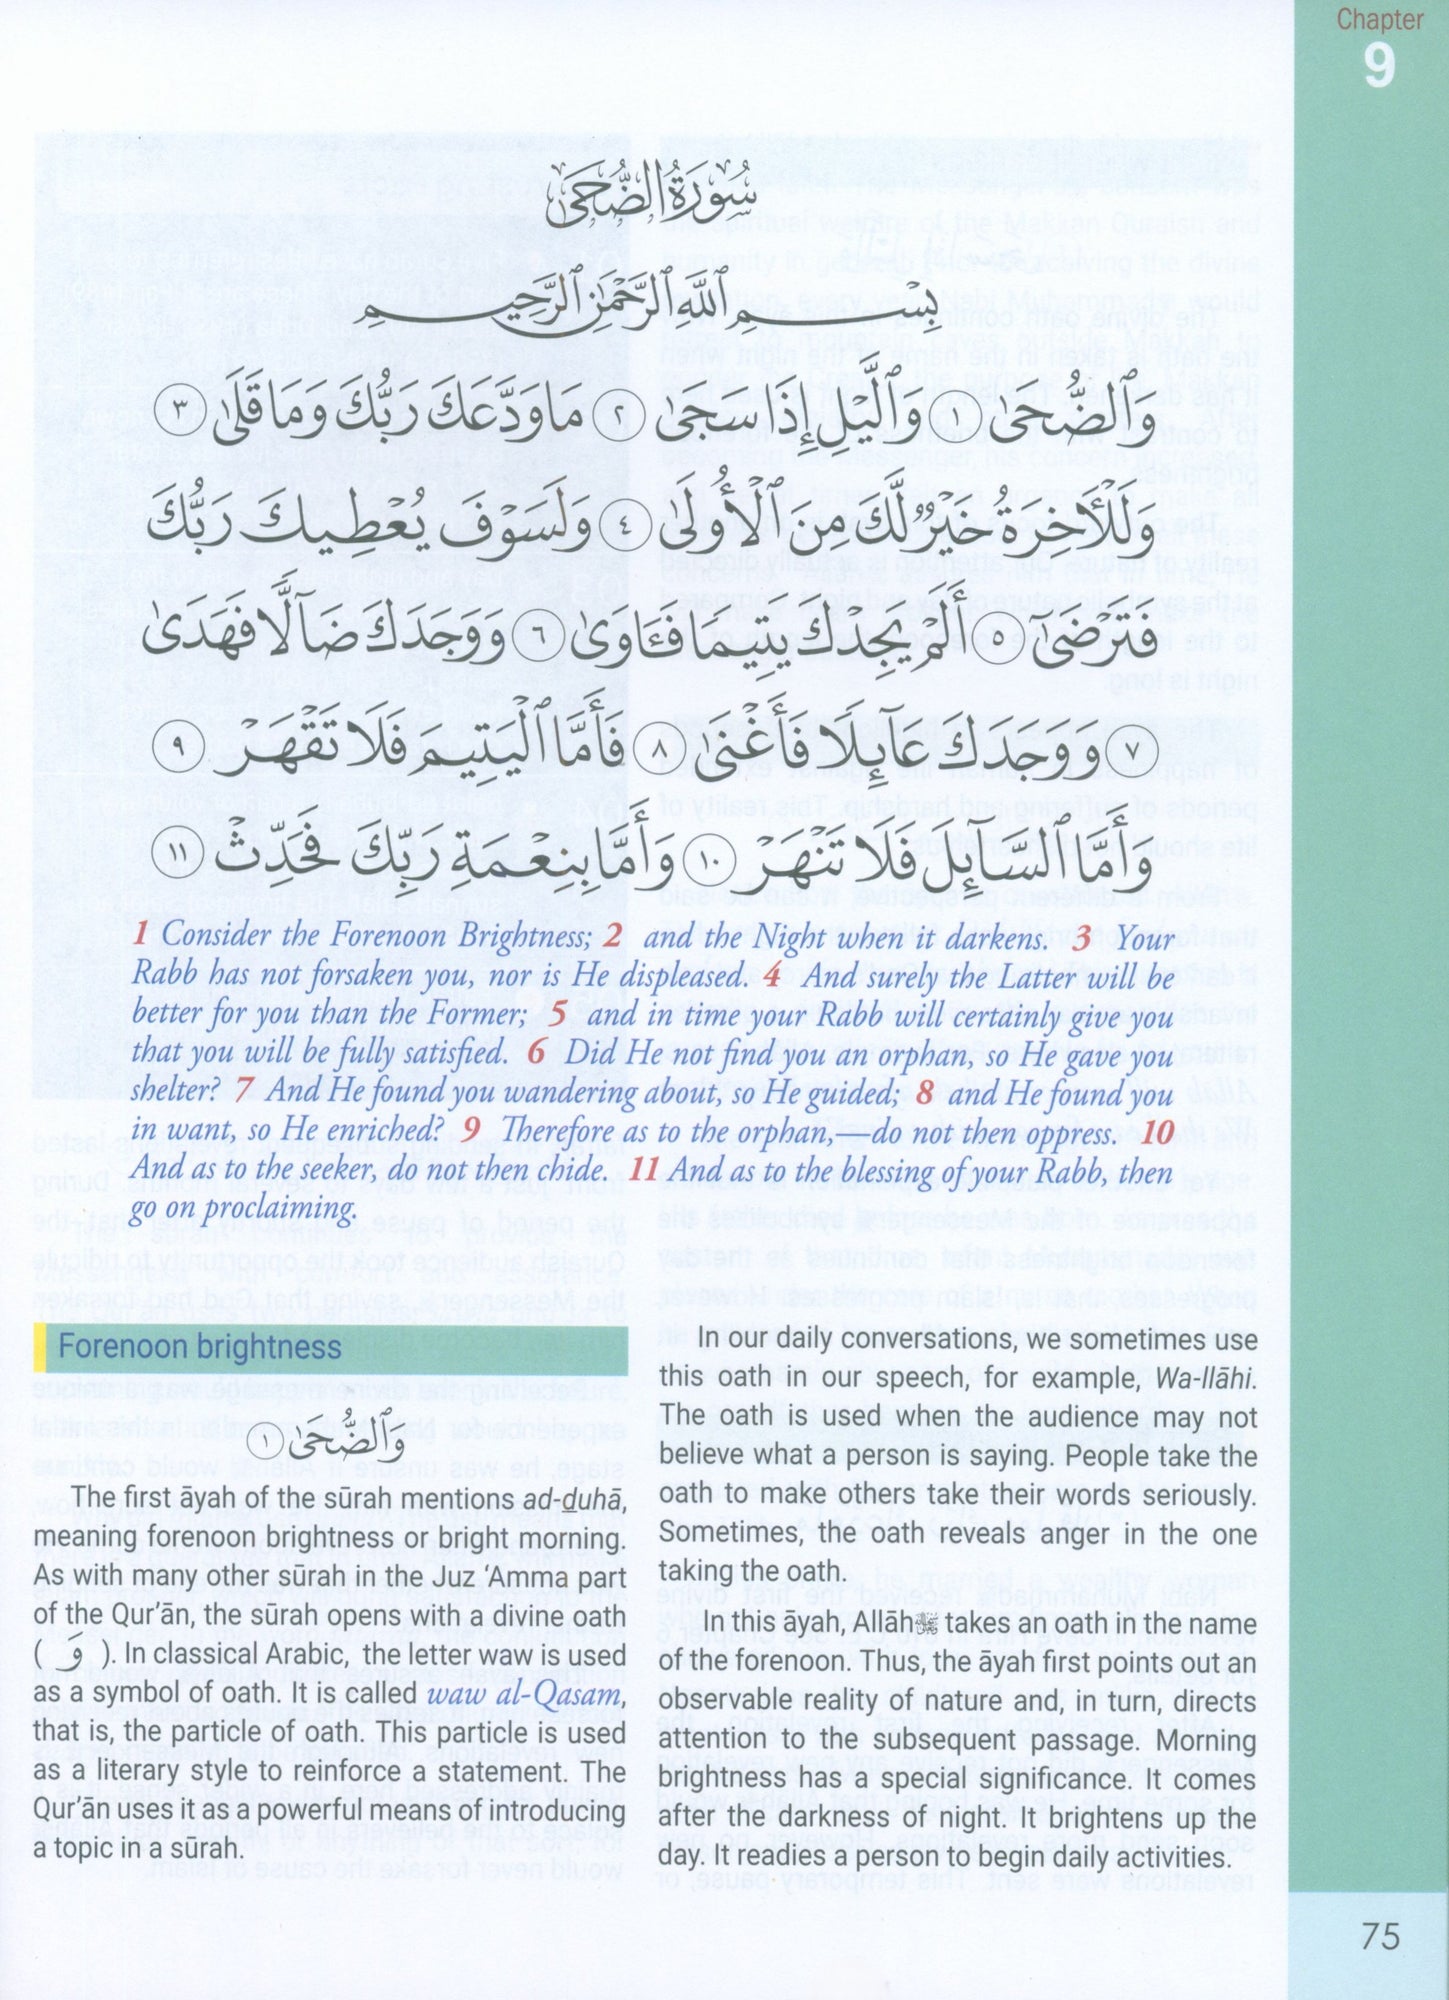 Chapter
9
سُورَةُ الضُّحَىٰ
بِسْمِ ٱللَّهِ ٱلرَّحْمَٰنِ ٱلرَّحِيمِ
وَٱلضُّحَىٰ ١ وَٱلَّيْلِ إِذَا سَجَىٰ ٢ مَا وَدَّعَكَ رَبُّكَ وَمَا قَلَىٰ ٣
وَلَلْأَخِرَةُ خَيْرٌ لَّكَ مِنَ ٱلْأُولَىٰ ٤ وَلَسَوْفَ يُعْطِيكَ رَبُّكَ
فَتَرْضَىٰٓ ٥ أَلَمْ يَجِدْكَ يَتِيمًا فَـَٔاوَىٰ ٦ وَوَجَدَكَ ضَآلًّا فَهَدَىٰ
٧ وَوَجَدَكَ عَآئِلًا فَأَغْنَىٰ ٨ فَأَمَّا ٱلْيَتِيمَ فَلَا تَقْهَرْ ٩
وَأَمَّا ٱلسَّآئِلَ فَلَا تَنْهَرْ ١٠ وَأَمَّا بِنِعْمَةِ رَبِّكَ فَحَدِّثْ ١١
1 Consider the Forenoon Brightness; 2 and the Night when it darkens. 3 Your
Rabb has not forsaken you, nor is He displeased. 4 And surely the Latter will be
better for you than the Former; 5 and in time your Rabb will certainly give you
that you will be fully satisfied. 6 Did He not find you an orphan, so He gave you
shelter? 7 And He found you wandering about, so He guided; 8 and He found you
in want, so He enriched? 9 Therefore as to the orphan,—do not then oppress. 10
And as to the seeker, do not then chide. 11 And as to the blessing of your Rabb, then
go on proclaiming.
Forenoon brightness
وَٱلضُّحَىٰ ١
The first āyah of the sūrah mentions ad-ḏuhā,
meaning forenoon brightness or bright morning.
As with many other sūrah in the Juz ‘Amma part
of the Qur’ān, the sūrah opens with a divine oath
( وَ ). In classical Arabic, the letter waw is used
as a symbol of oath. It is called waw al-Qasam,
that is, the particle of oath. This particle is used
as a literary style to reinforce a statement. The
Qur’ān uses it as a powerful means of introducing
a topic in a sūrah.
In our daily conversations, we sometimes use
this oath in our speech, for example, Wa-llāhi.
The oath is used when the audience may not
believe what a person is saying. People take the
oath to make others take their words seriously.
Sometimes, the oath reveals anger in the one
taking the oath.
In this āyah, Allāh takes an oath in the name
of the forenoon. Thus, the āyah first points out an
observable reality of nature and, in turn, directs
attention to the subsequent passage. Morning
brightness has a special significance. It comes
after the darkness of night. It brightens up the
day. It readies a person to begin daily activities.
75